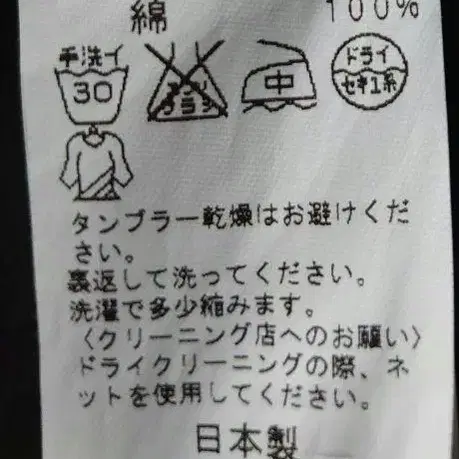 綿 100%
手洗イ
30
エンソ
サラシ
中
ドライ
セキユ系
タンブラー乾燥はお避けくだ
さい。
裏返して洗ってください。
洗濯で多少縮みます。
〈クリーニング店へのお願い〉
ドライクリーニングの際、ネ
ットを使用してください。
日本製